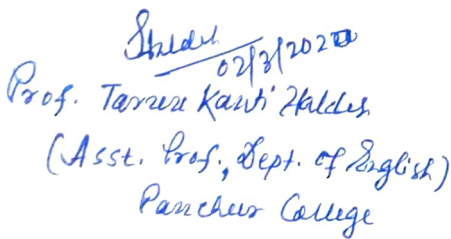 02/3/2020
Prof. Tarun Kanti Halder
(Asst. Prof., Dept. of English)
Panchur College